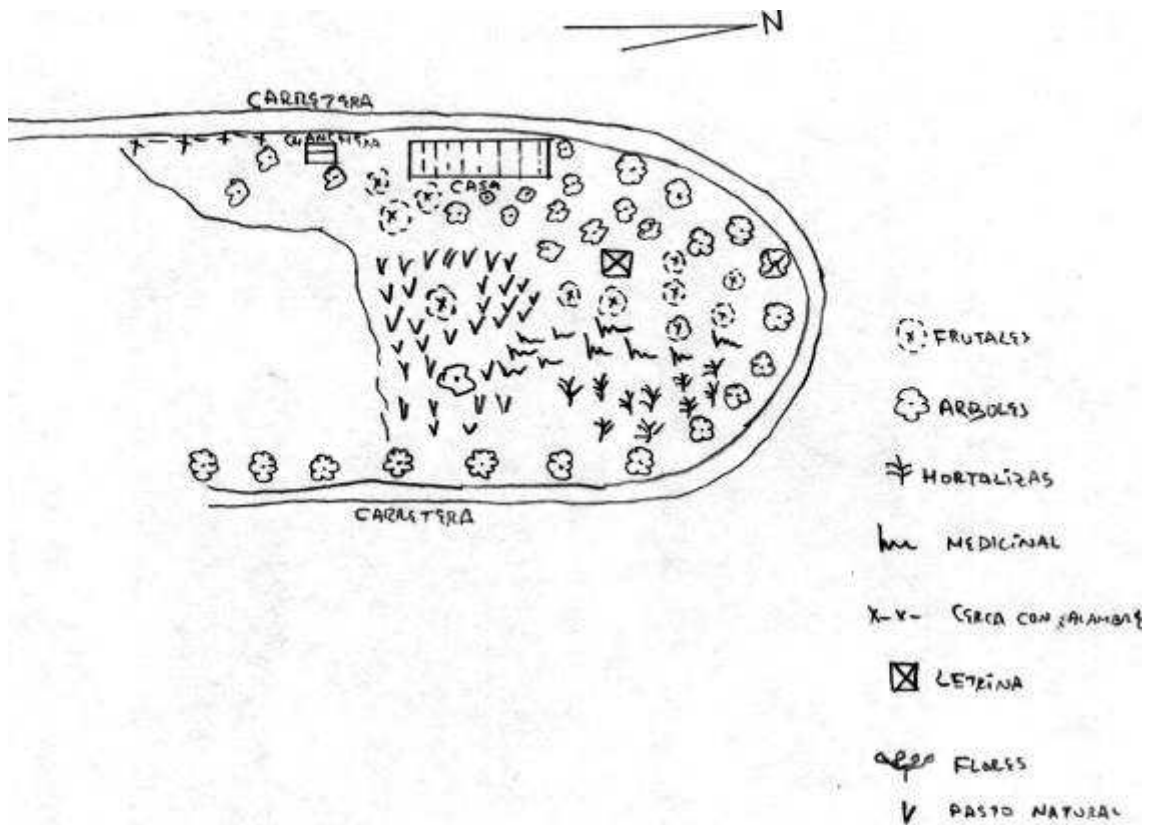 N
CARRETERA
CHANCHERA
CASA
CARRETERA
FRUTALES
ARBOLES
HORTALIZAS
MEDICINAL
x-x- CERCA CON ALAMBRE
LETRINA
FLORES
PASTO NATURAL